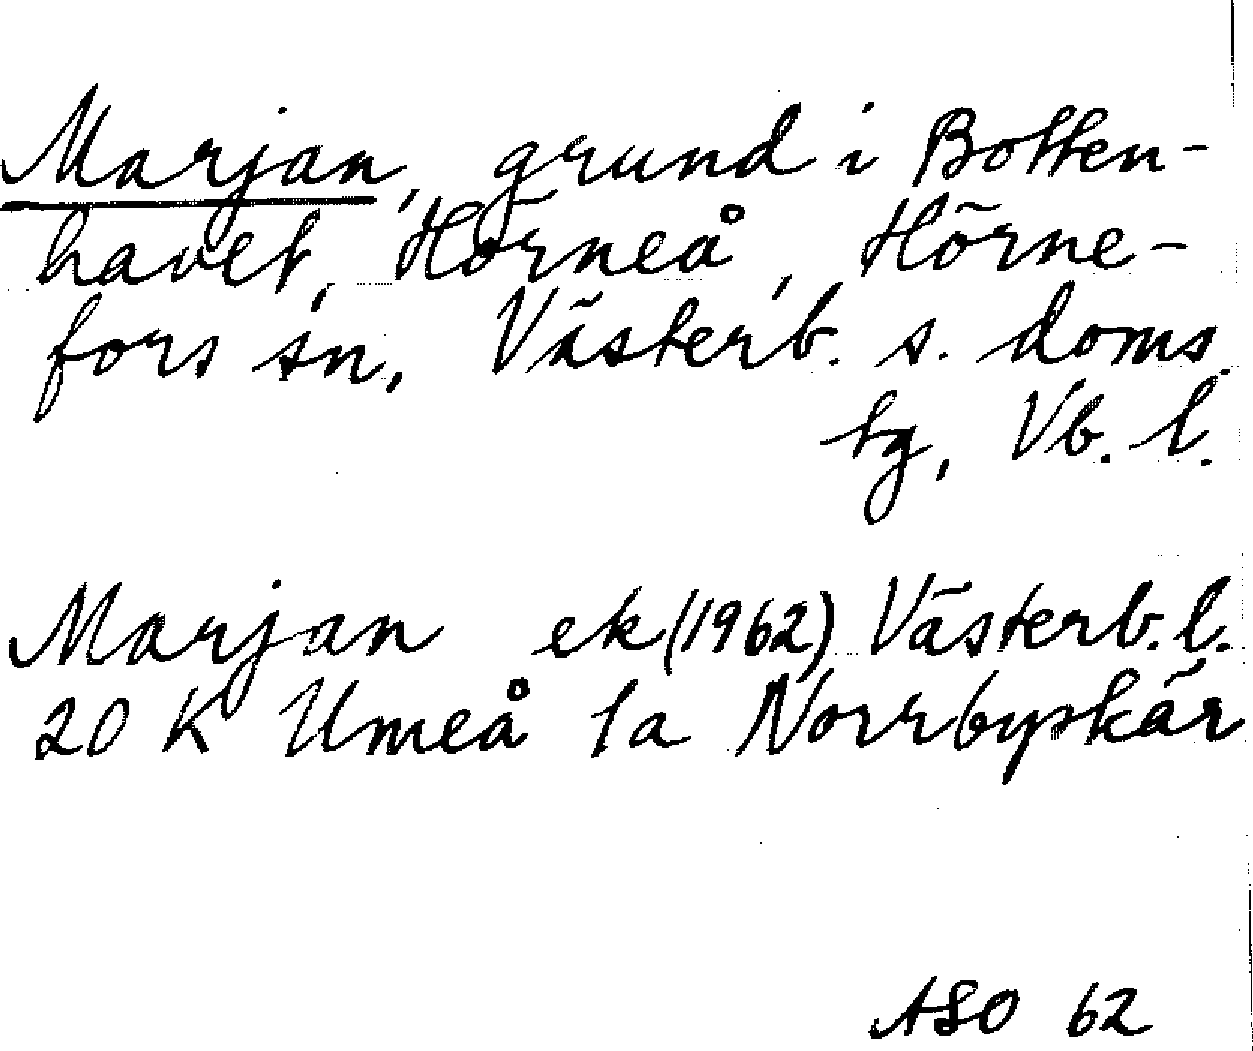 Marjan, grund i Botten-
havet, Hörneå, Hörne-
fors sn, Västerb. s. doms.
tg, Vb. l.
Marjan ek (1962) Västerb. l.
20 K Umeå 1a Norrbyskär
ASO 62